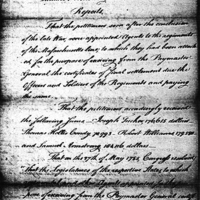 Reports,
That the petitioners soon after the conclusion
of the late War, were appointed Agents to the regiments
of the Massachusetts line, to which they had been attach
ed, for the purpose of receiving from the Paymaster
General the certificates of final settlement due the
Officers and Soldiers of the Regiments and paying
the same.
That the petitioners accordingly received
the following sums. Joseph Tucker dollars
Thomas Hollis Condy Robert Williams
and Samuel Armstrong dollars
That on the 27th of May 1785 Congress resolved
That the legislatures of the respective States to which
Agents
from receiving from the Paymaster General